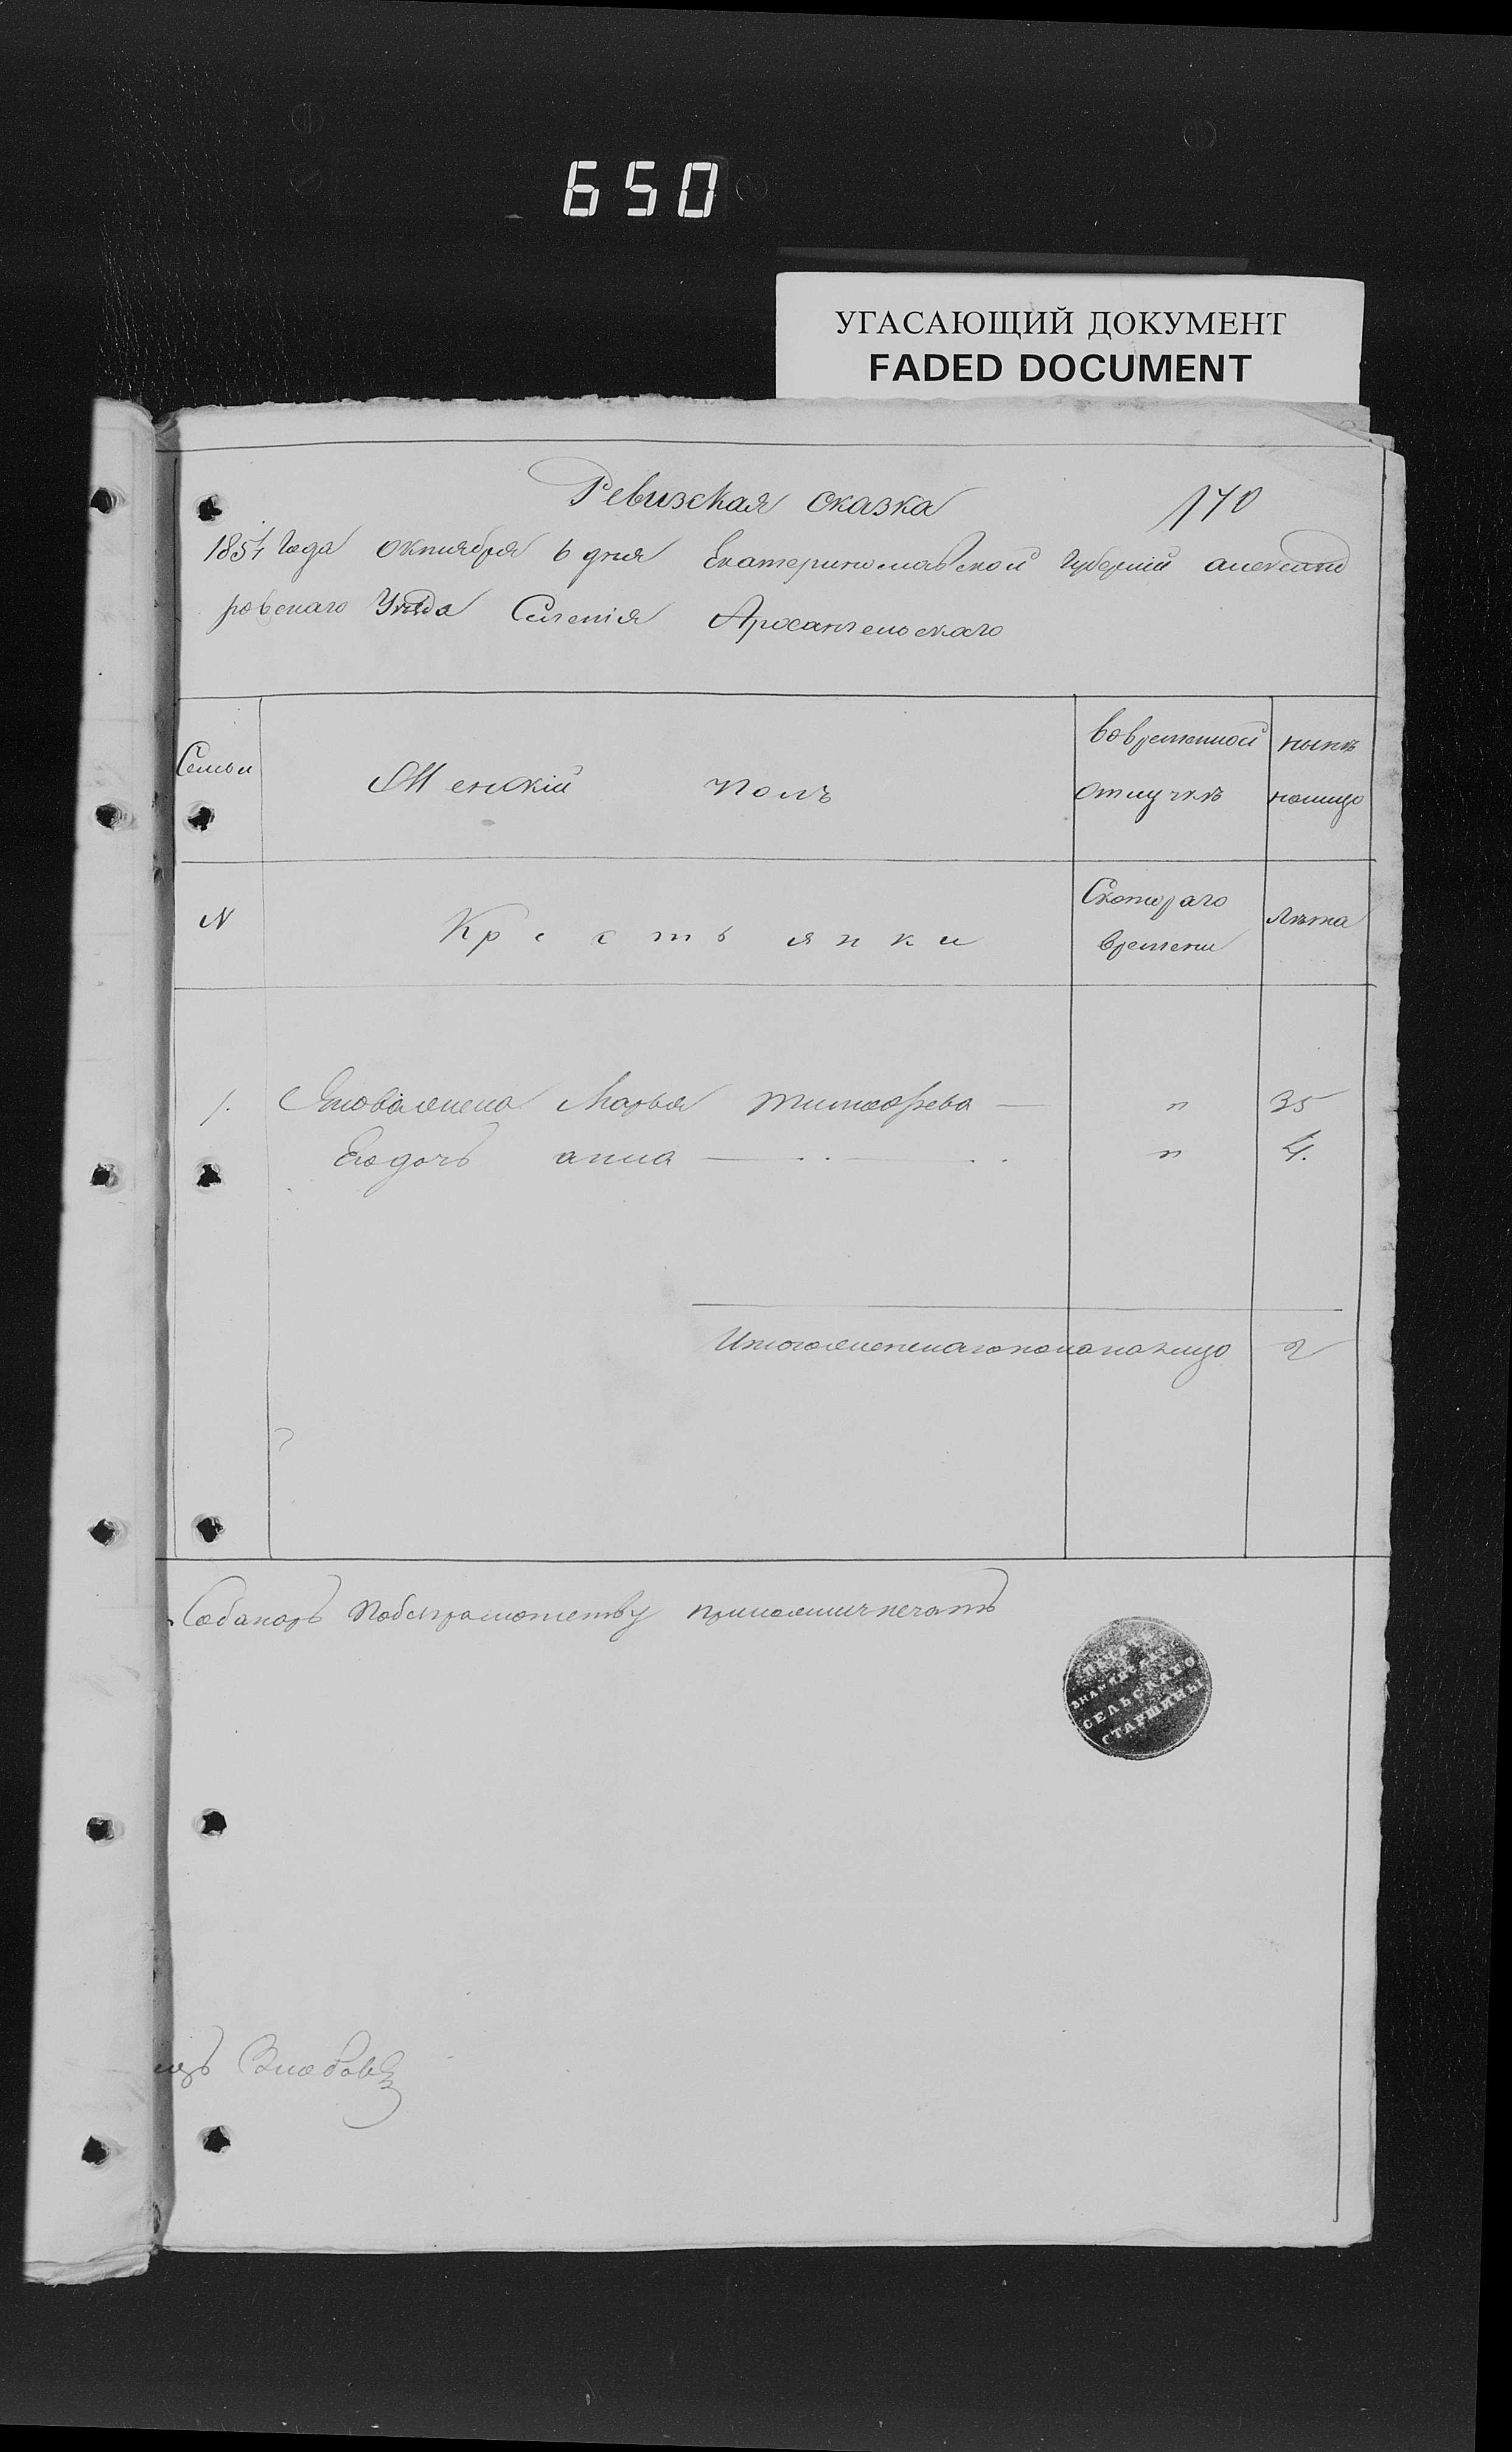 650
УГАСАЮЩИЙ ДОКУМЕНТ
FADED DOCUMENT
Ревизская сказка
170
1854 Года октиября 6 дня Екатеринославской Губернiи александ
ровскаго Уѣзда Селенiя Архангельскаго
Семьи
Женскiй полъ
вовременной отлучкѣ
нынѣ налицо
N
Крестьянки
Скотораго времени
Лѣта
1. Марья Тимофѣева — " 35
Еюдочь анна — " 4.
Итогоженскагополаналицо 2
побезграмотству приложилъпечать
ПЕЧАТЬ
СЕЛЬСКАГО
СТАРШИНЫ